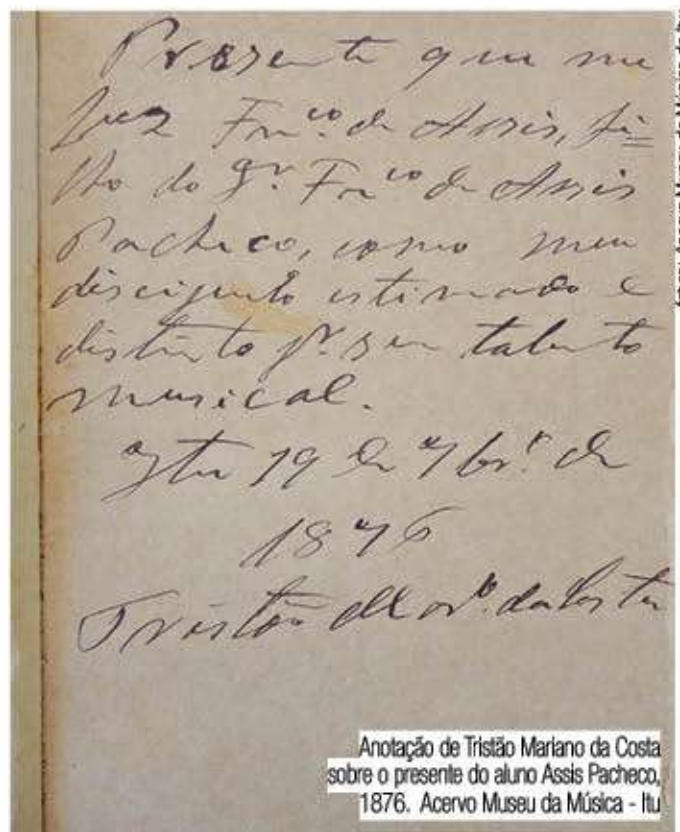 Presente que me
fez Fran.co de Assis, fi=
lho do Sr. Fran.co de Assis
Pacheco, como meu
discipulo estimado e
distinto pr. seu talento
musical.
Ytu 19 de 7br.o de
1876
Tristão Mar.o da Costa
Anotação de Tristão Mariano da Costa
sobre o presente do aluno Assis Pacheco,
1876. Acervo Museu da Música - Itu